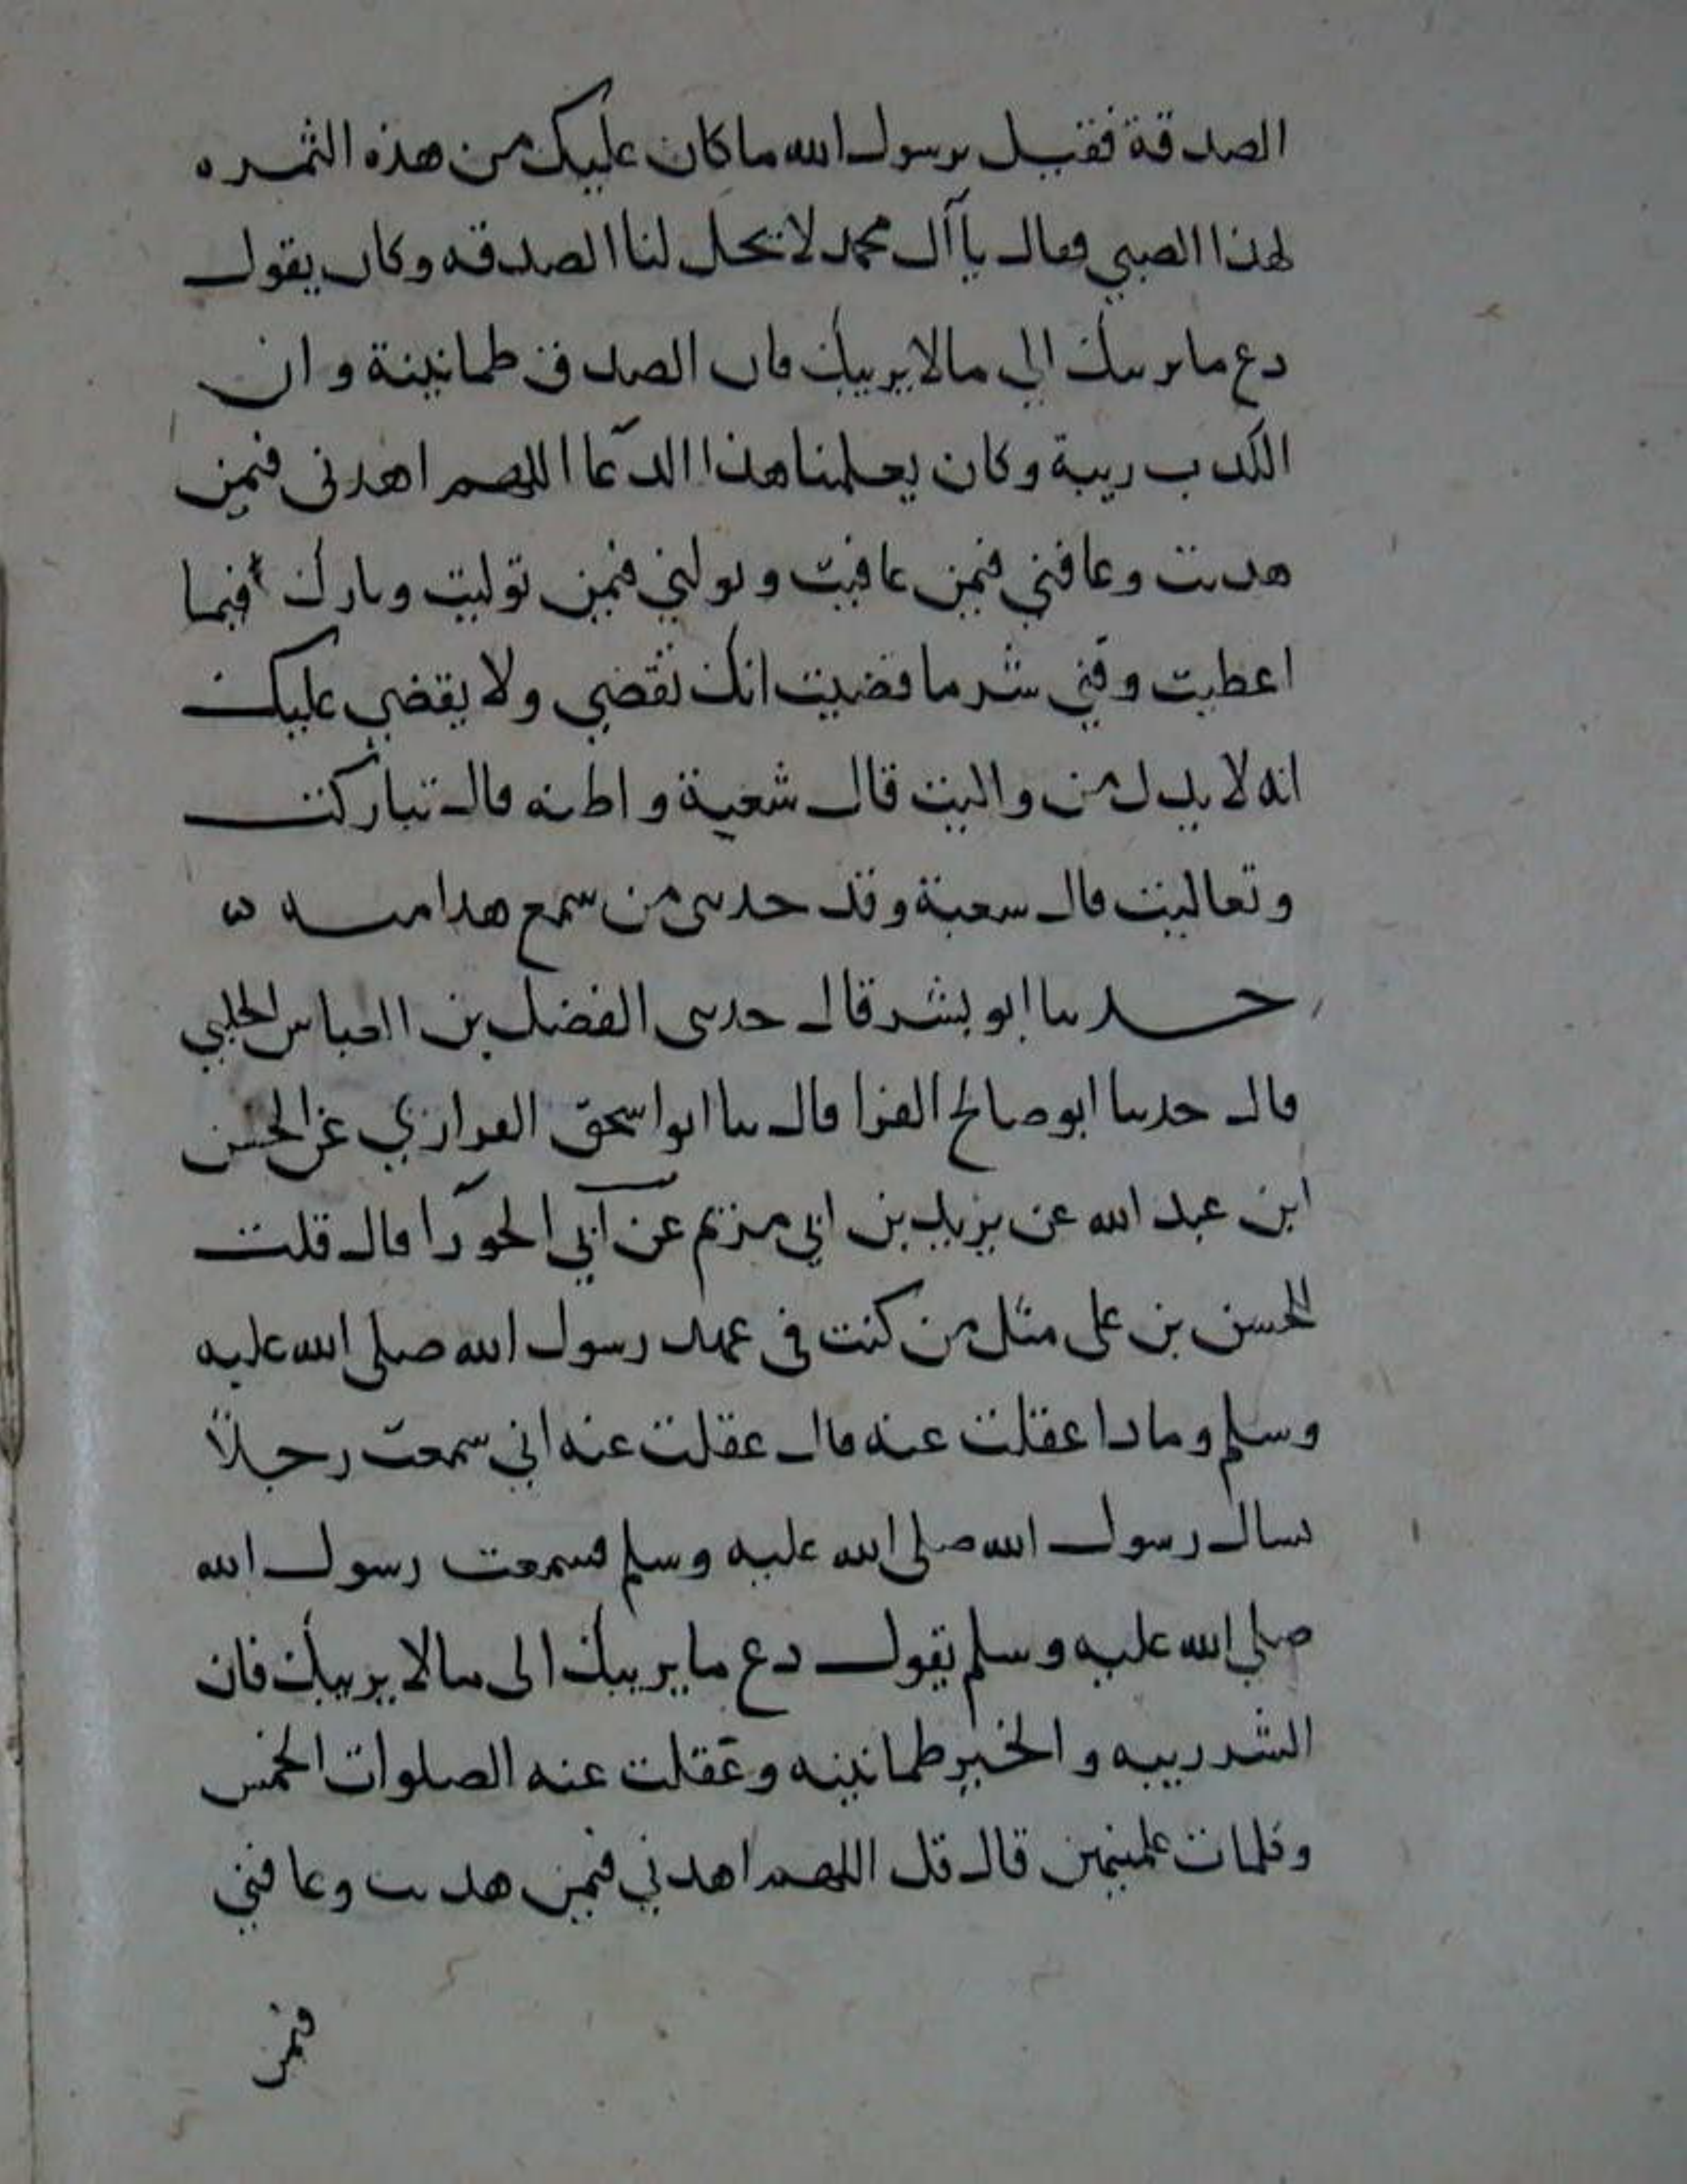 الصدقة فقيل يرسول الله ما كان عليك من هذه الثمره
لهذا الصبي فقال يا آل محمد لا تحل لنا الصدقه وكان يقول
دع ما يريبك الي مالا يريبك فان الصدق طمانينة وان
الكذب ريبة وكان يعلمنا هذا الدعا اللهم اهدني فيمن
هديت وعافني فيمن عافيت وتولني فيمن توليت وبارك فيما
اعطيت وقني شر ما قضيت انك تقضي ولا يقضي عليك
انه لا يذل من واليت قال شعبة واظنه قال تباركت
وتعاليت قال شعبة وقد حدثني من سمع هذا منه
حدثنا ابو بشر قال حدثني الفضل بن العباس الحلبي
قال حدثنا ابو صالح الفرا قال ثنا ابو اسحق الفزازي عن الحسن
ابن عبد الله عن يزيد بن ابي مريم عن ابي الحورا قال قلت
للحسن بن علي مثل من كنت في عهد رسول الله صلى الله عليه
وسلم وماذا عقلت عنه قال عقلت عنه اني سمعت رجلاً
يسال رسول الله صلى الله عليه وسلم فسمعت رسول الله
صلي الله عليه وسلم يقول دع ما يريبك الى مالا يريبك فان
الشر ريبه والخير طمانينه وعقلت عنه الصلوات الخمس
وكلمات علمنيهن قال قل اللهم اهدني فيمن هديت وعافني
فيمن